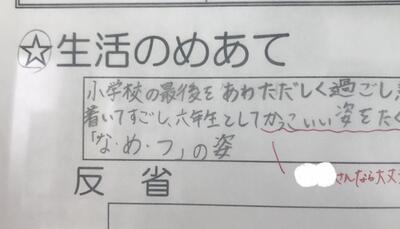 ☆生活のめあて
小学校の最後をあわただしく過ごし
着いてすごし、六年生としてかっこいい姿をたく
「な・め・つ」の姿
さんなら大丈
反省